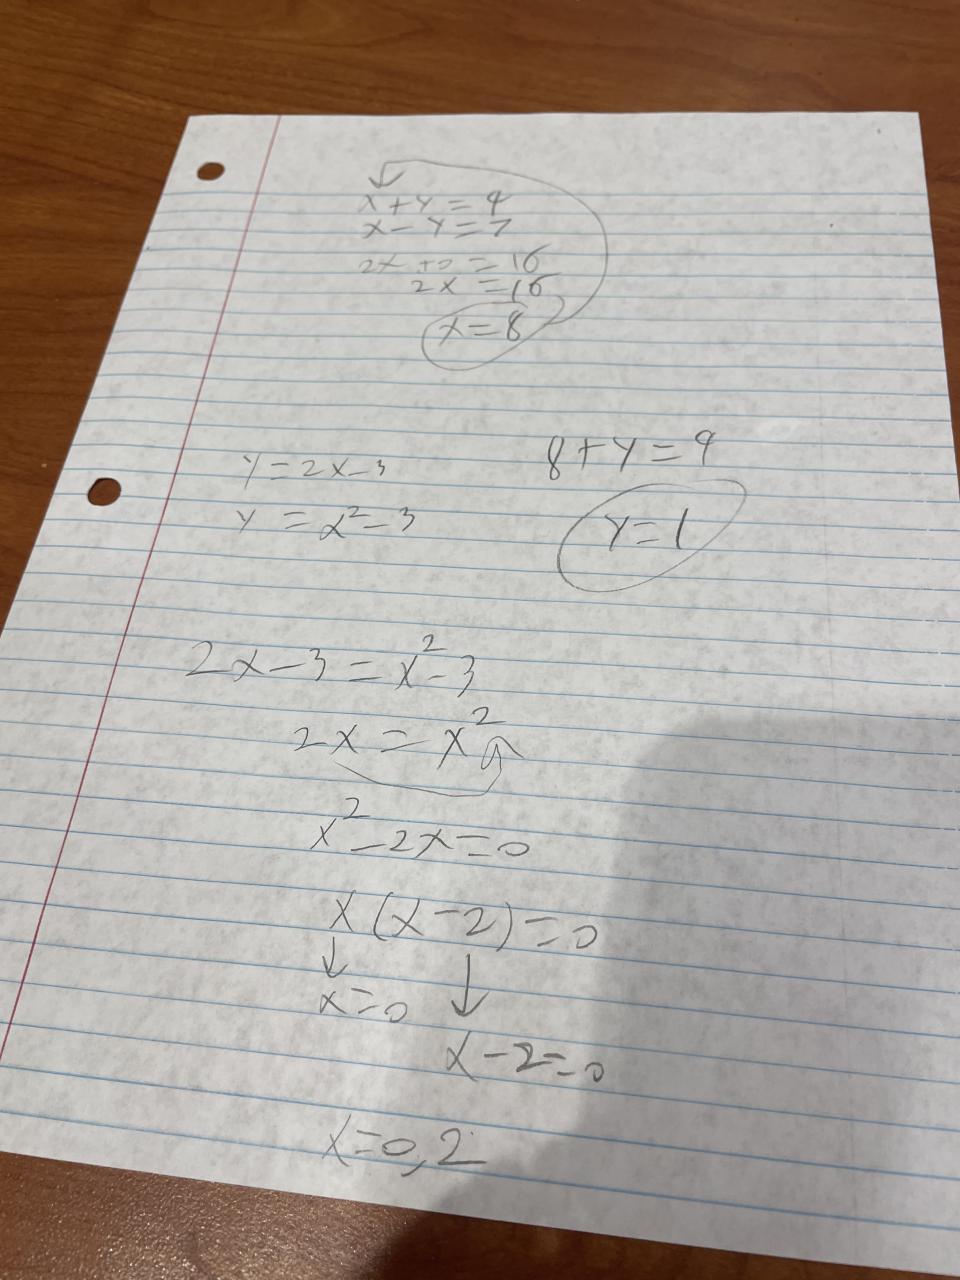 x+y=9
x-y=7
2x+0=16
2x=16
x=8
8+y=9
y=1
y=2x-3
y=x²-3
2x-3=x²-3
2x=x²
x²-2x=0
x(x-2)=0
x=0
x-2=0
x=0,2